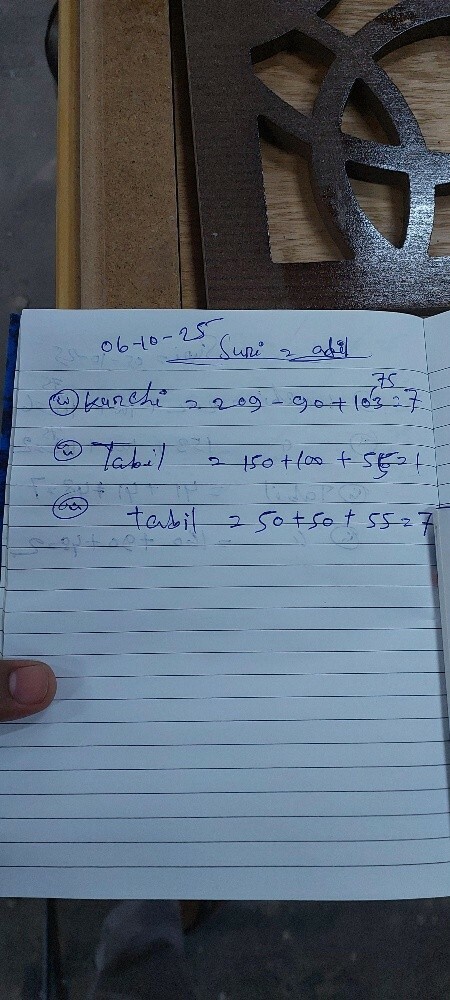 06-10-25 Suri = adil
(i) Kurchi = 209 - 90 + 103 = 7
75
(ii) Tabil = 150 + 100 + 55 = 1
(iii) tabil = 50 + 50 + 55 = 7